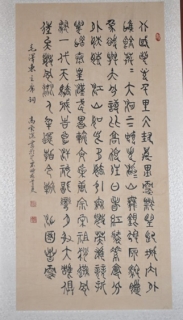 北國風光千里冰封萬里雪飄望長城內外
惟餘莽〻大河上下頓失滔〻山舞銀蛇原馳蠟
象欲與天公試比高須晴日看紅裝素裹分
外妖嬈 江山如此多嬌引無數英雄競折
腰惜秦皇漢武略輸文采唐宗宋祖稍遜風
騷一代天驕成吉思汗只識彎弓射大雕俱
往矣數風流人物還看今朝 沁園春雪
毛澤東主席詞